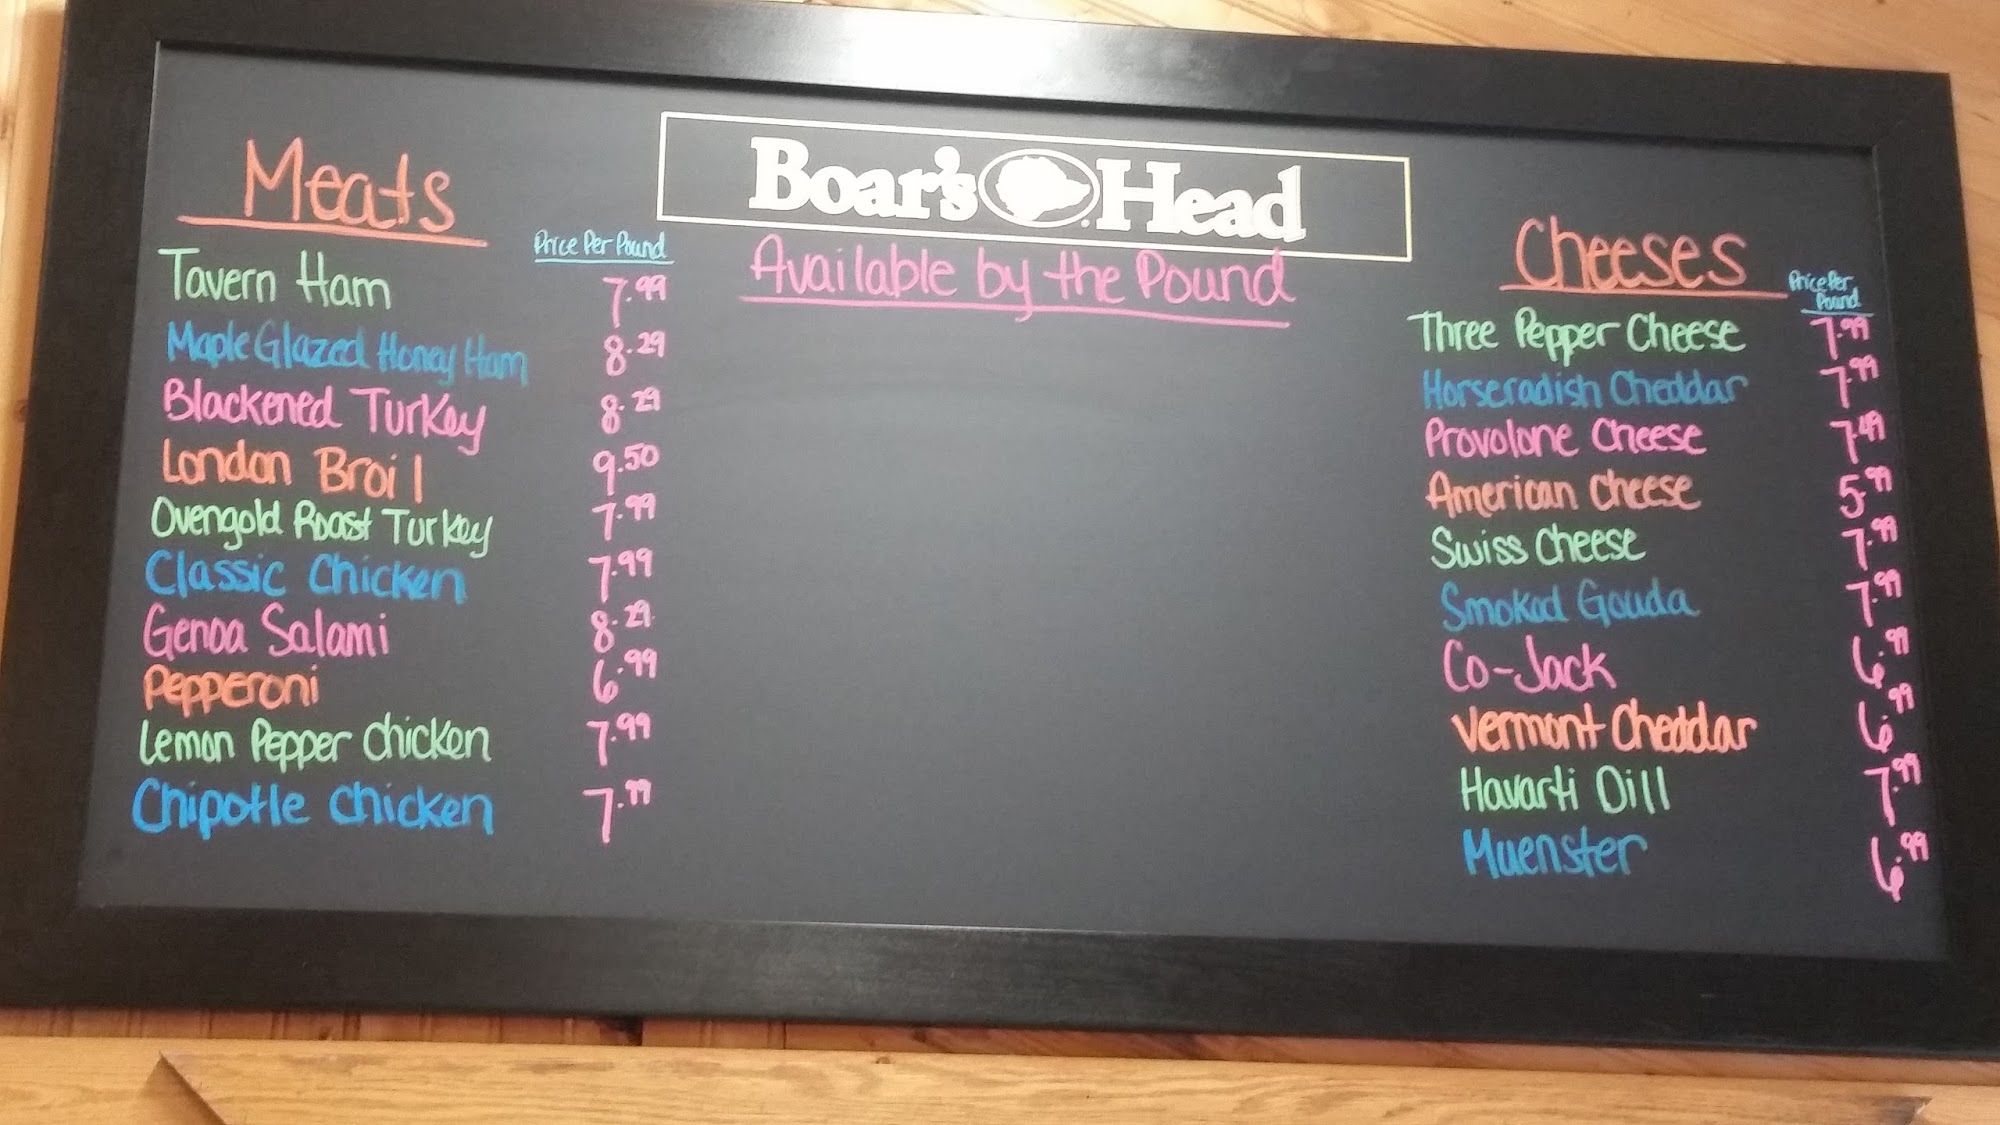 Boar's Head
Available by the Pound
Meats
Price Per Pound
Tavern Ham 7.99
Maple Glazed Honey Ham 8.29
Blackened Turkey 8.29
London Broil 9.50
Ovengold Roast Turkey 7.99
Classic Chicken 7.99
Genoa Salami 8.29
Pepperoni 6.99
Lemon Pepper Chicken 7.99
Chipotle Chicken 7.99
Cheeses
Price Per
Pound
Three Pepper Cheese 7.99
Horseradish Cheddar 7.99
Provolone Cheese 7.49
American Cheese 5.99
Swiss Cheese 7.99
Smoked Gouda 7.99
Co-Jack 6.99
Vermont Cheddar 6.99
Havarti Dill 7.99
Muenster 6.99